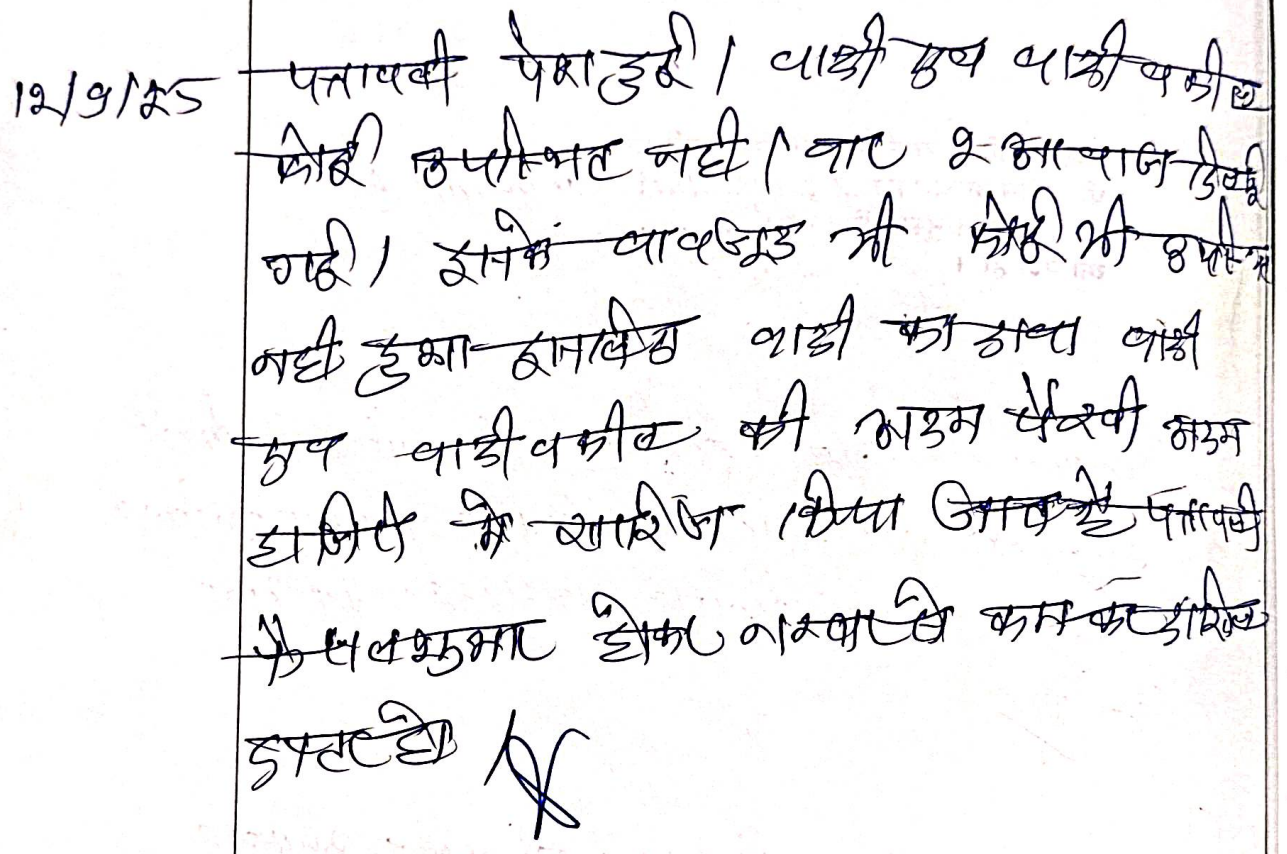 12/9/25 पत्रावली पेश हुई। वादी एवं वादी वकील
कोई उपस्थित नहीं। बार २ आवाज दिलाई
गई। इसके बावजूद भी कोई भी उपस्थित
नहीं हुआ इसलिए वादी का दावा वादी
एवं वादी वकील की अदम पैरवी अदम
हाजिरी में खारिज किया जाता है पत्रावली
फैसल शुमार होकर नम्बर से कम कर दाखिल
दफ्तर हो